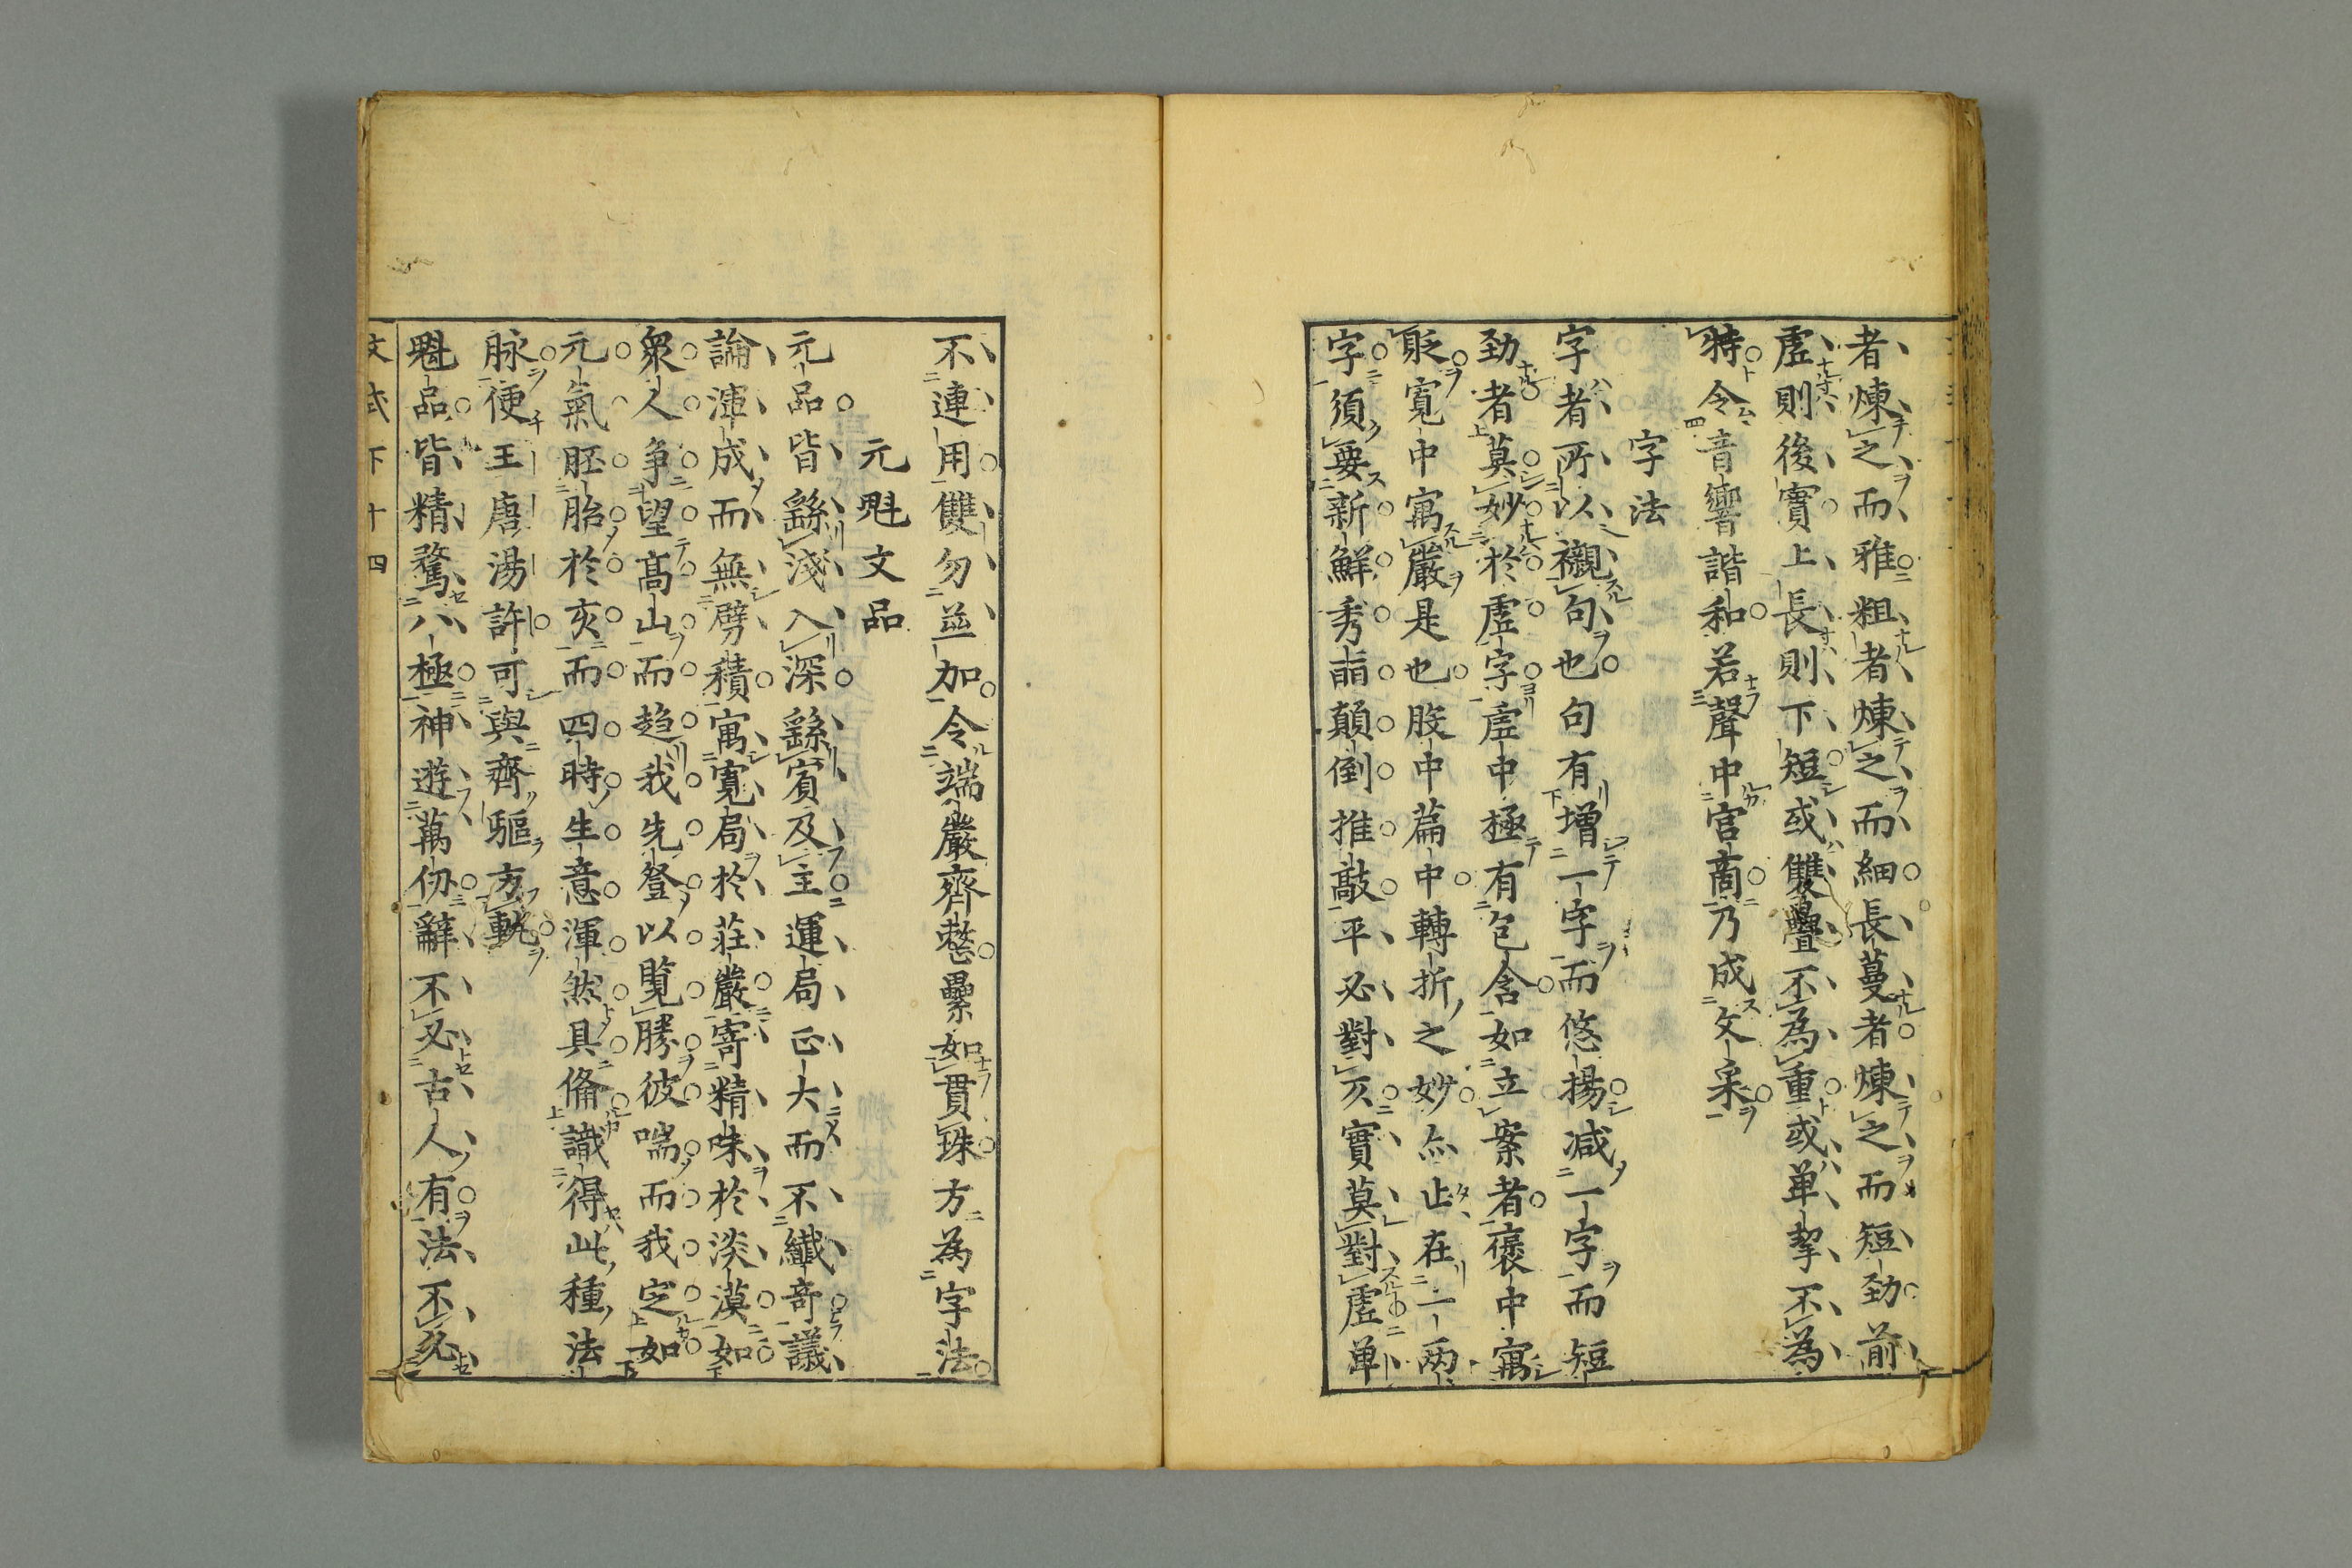 者煉之而雅粗者煉之而細長蔓者煉之而短勁前
虛則後實上長則下短或雙疊不為重或单挈不為
特令音響諧和若聲中宮商乃成文采
字法
字者所以襯句也句有增一字而悠揚減一字而短
勁者莫妙於虛字虛中極有包含如立案者褒中寓
貶寬中寓嚴是也股中篇中轉折之妙亦止在一两
字須要新鮮秀詣顛倒推敲平必對仄實莫對虛单
不連用雙勿並加令端嚴齊整纍如貫珠方為字法
元魁文品
元品皆繇淺入深繇賓及主運局正大而不纖奇議
論渾成而無劈積寓寬局於莊嚴寄精味於淡漠如
衆人爭望高山而趋我先登以覧勝彼喘而我定如
元氣胚胎於亥而四時生意渾然具僃識得此種法
脉便王唐湯許可與齊驅方軌
魁品皆精騖八極神遊萬仞辭不必古人有法不必
文式下十四